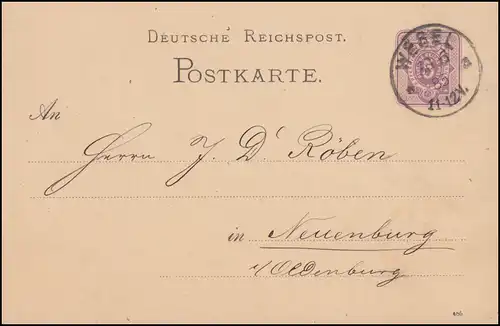 DEUTSCHE REICHSPOST.
POSTKARTE.
WESEL
11-12V.
An
Herrn J. D. Röben
in Neuenburg
i/Oldenburg